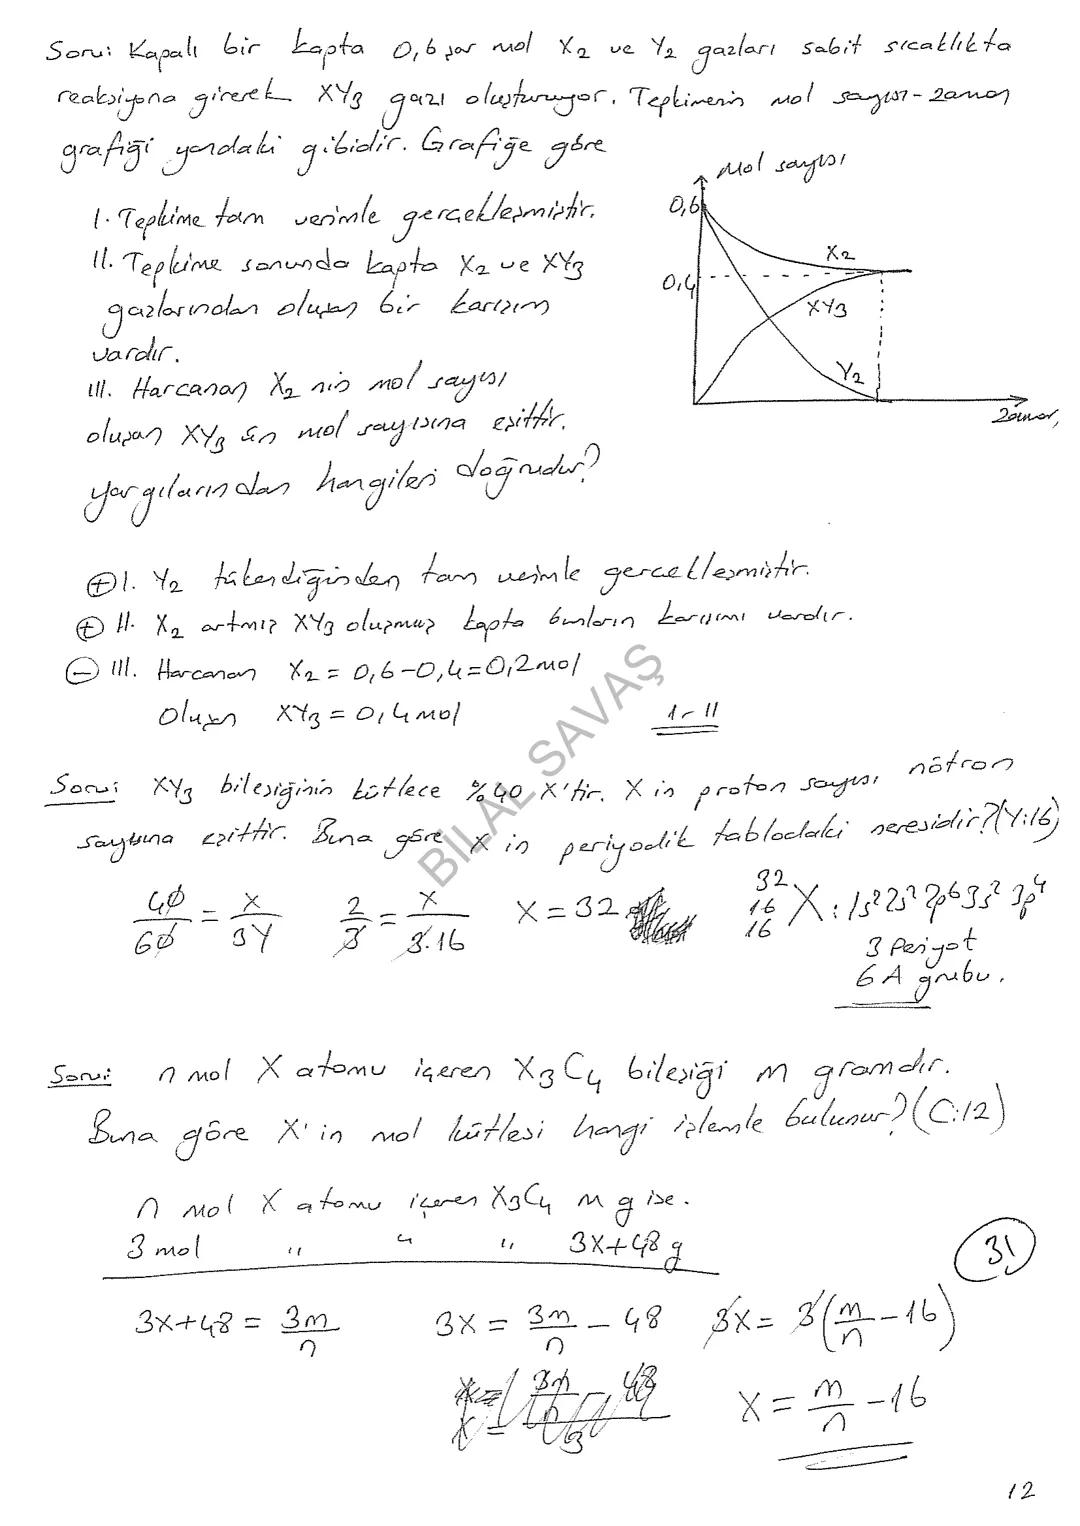 Soru: Kapalı bir kapta 0,6 şar mol X₂ ve Y₂ gazları sabit sıcaklıkta
reaksiyona girerek XY₃ gazı oluşturuyor. Tepkimenin mol sayısı-zaman
grafiği yandaki gibidir. Grafiğe göre
I. Tepkime tam verimle gerçekleşmiştir.
II. Tepkime sonunda kapta X₂ ve XY₃
gazlarından oluşan bir karışım
vardır.
III. Harcanan X₂ nin mol sayısı
oluşan XY₃ ün mol sayısına eşittir.
yargılarından hangileri doğrudur?
Mol sayısı
0,6
X₂
0,4
XY₃
Y₂
zaman
⊕ I. Y₂ tükendiğinden tam verimle gerçekleşmiştir.
⊕ II. X₂ artmış XY₃ oluşmuş kapta bunların karışımı vardır.
⊖ III. Harcanan X₂ = 0,6-0,4=0,2 mol
Oluşan XY₃ = 0,4 mol
I-II
BİLAL SAVAŞ
Soru: XY₃ bileşiğinin kütlece %40 X'tir. X in proton sayısı nötron
sayısına eşittir. Buna göre X in periyodik tablodaki neresidir? (Y:16)
40/60 = X/3Y 2/3 = X/3.16 X=32 32 16 16 X: 1s² 2s² 2p⁶ 3s² 3p⁴
3 Periyot
6A grubu.
Soru: n mol X atomu içeren X₃C₄ bileşiği m gramdır.
Buna göre X'in mol kütlesi hangi işlemle bulunur? (C:12)
n mol X atomu içeren X₃C₄ m g ise.
3 mol " " " 3X+48 g
31
3X+48 = 3m/n 3X = 3m/n - 48 3X = 3(m/n - 16)
X = m/n - 16
12